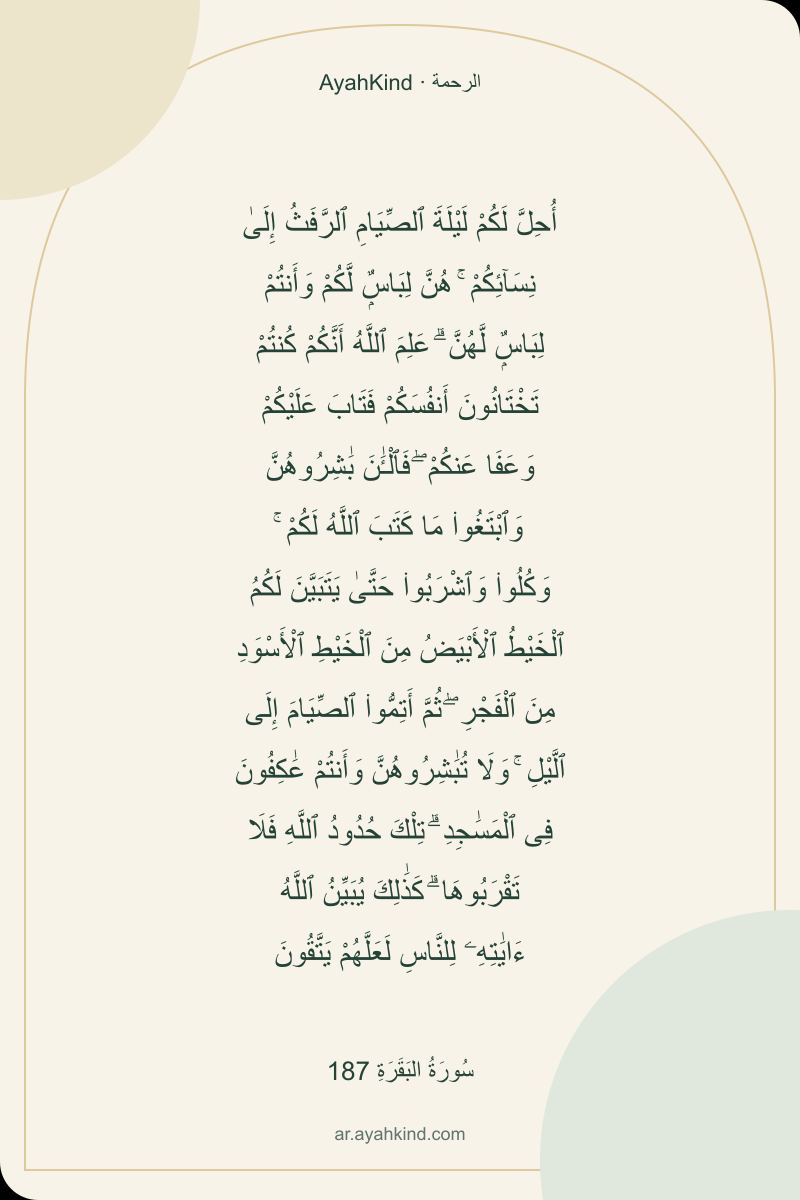 AyahKind · الرحمة
أُحِلَّ لَكُمْ لَيْلَةَ ٱلصِّيَامِ ٱلرَّفَثُ إِلَىٰ
نِسَآئِكُمْ ۚ هُنَّ لِبَاسٌۭ لَّكُمْ وَأَنتُمْ
لِبَاسٌۭ لَّهُنَّ ۗ عَلِمَ ٱللَّهُ أَنَّكُمْ كُنتُمْ
تَخْتَانُونَ أَنفُسَكُمْ فَتَابَ عَلَيْكُمْ
وَعَفَا عَنكُمْ ۖ فَٱلْـَٔـٰنَ بَـٰشِرُوهُنَّ
وَٱبْتَغُوا۟ مَا كَتَبَ ٱللَّهُ لَكُمْ ۚ
وَكُلُوا۟ وَٱشْرَبُوا۟ حَتَّىٰ يَتَبَيَّنَ لَكُمُ
ٱلْخَيْطُ ٱلْأَبْيَضُ مِنَ ٱلْخَيْطِ ٱلْأَسْوَدِ
مِنَ ٱلْفَجْرِ ۖ ثُمَّ أَتِمُّوا۟ ٱلصِّيَامَ إِلَى
ٱلَّيْلِ ۚ وَلَا تُبَـٰشِرُوهُنَّ وَأَنتُمْ عَـٰكِفُونَ
فِى ٱلْمَسَـٰجِدِ ۗ تِلْكَ حُدُودُ ٱللَّهِ فَلَا
تَقْرَبُوهَا ۗ كَذَٰلِكَ يُبَيِّنُ ٱللَّهُ
ءَايَـٰتِهِۦ لِلنَّاسِ لَعَلَّهُمْ يَتَّقُونَ
سُورَةُ البَقَرَةِ 187
ar.ayahkind.com